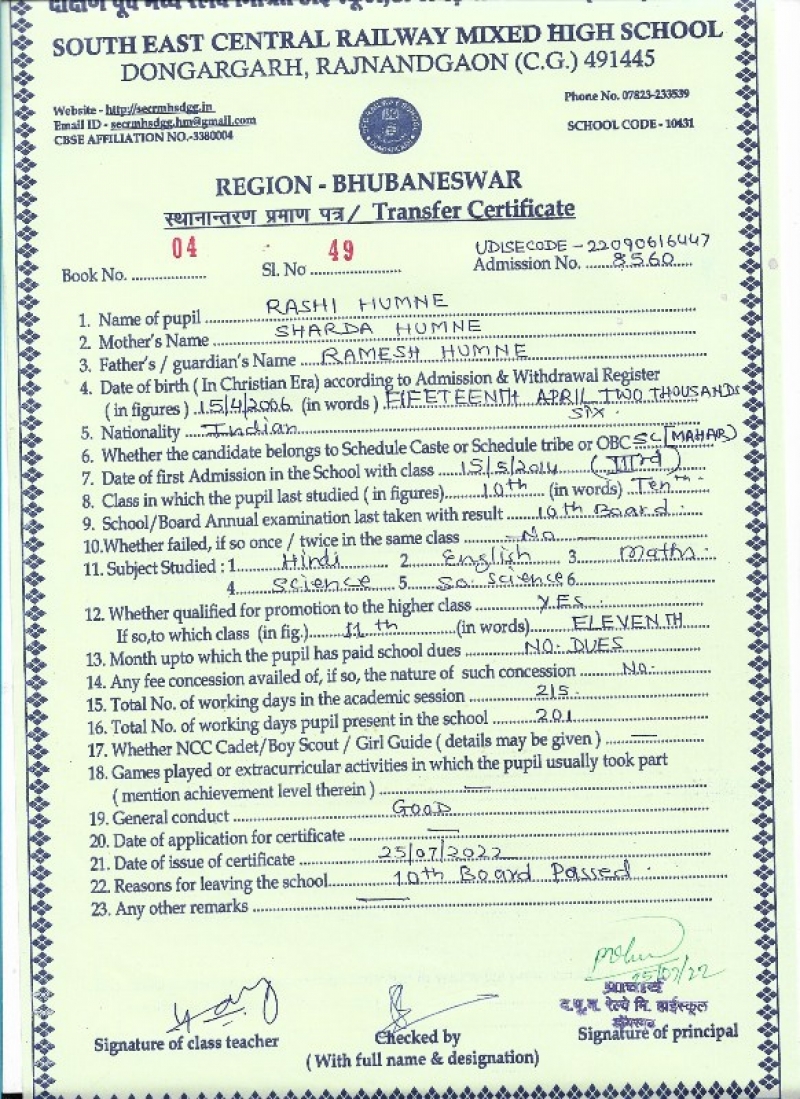 SOUTH EAST CENTRAL RAILWAY MIXED HIGH SCHOOL
DONGARGARH, RAJNANDGAON (C.G.) 491445
Website - http://secrmhsdgg.in
Email ID - secrmhsdgg.hm@gmail.com
CBSE AFFILIATION NO.-3380004
Phone No. 07823-233539
SCHOOL CODE - 10431
REGION - BHUBANESWAR
स्थानान्तरण प्रमाण पत्र / Transfer Certificate
Book No. 04 Sl. No 49
UDISECODE - 22090616447
Admission No. 8560
1. Name of pupil RASHI HUMNE
2. Mother's Name SHARDA HUMNE
3. Father's / guardian's Name RAMESH HUMNE
4. Date of birth ( In Christian Era) according to Admission & Withdrawal Register
( in figures ) 15/4/2006 (in words ) FIFETEENTH APRIL TWO THOUSANDS
SIX.
5. Nationality Indian
6. Whether the candidate belongs to Schedule Caste or Schedule tribe or OBC SC [MAHAR)
7. Date of first Admission in the School with class 15/5/2014 (IIIrd)
8. Class in which the pupil last studied ( in figures) 10th (in words) Tenth.
9. School/Board Annual examination last taken with result 10th Board.
10.Whether failed, if so once / twice in the same class No
11. Subject Studied : 1 Hindi 2 English 3 Maths.
4 Science 5 So. Science 6
12. Whether qualified for promotion to the higher class YES.
If so,to which class (in fig.) 11 th (in words) ELEVENTH
13. Month upto which the pupil has paid school dues NO. DUES
14. Any fee concession availed of, if so, the nature of such concession No.
15. Total No. of working days in the academic session 215.
16. Total No. of working days pupil present in the school 201
17. Whether NCC Cadet/Boy Scout / Girl Guide ( details may be given ) —
18. Games played or extracurricular activities in which the pupil usually took part
( mention achievement level therein ) —
19. General conduct GOOD
20. Date of application for certificate —
21. Date of issue of certificate 25/07/2022
22. Reasons for leaving the school 10th Board Passed.
23. Any other remarks —
25/07/22
प्राचार्य
द.पू.म. रेल्वे मि. हाईस्कूल
Signature of class teacher
Checked by
( With full name & designation)
Signature of principal